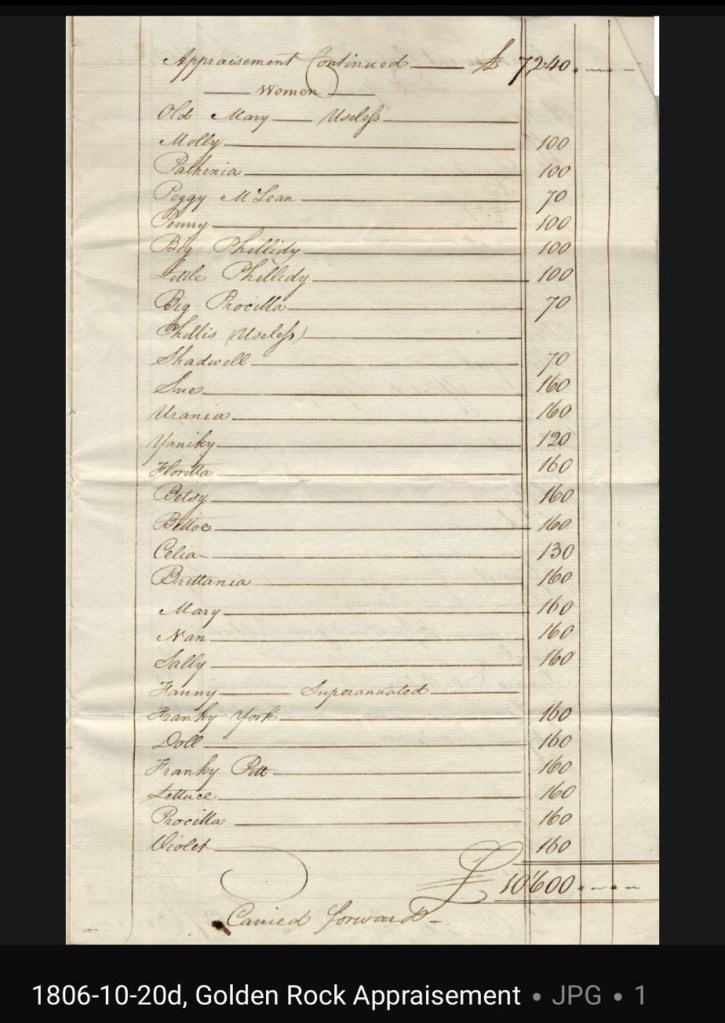 Appraisement Continued £ 7240
Women
Old Mary Useless
Molly 100
Pathinia 100
Peggy McLean 70
Penny 100
Big Phillidy 100
Little Phillidy 100
Big Procilla 70
Phillis (Useless)
Shadwell 70
Sue 160
Urania 160
Yaniky 120
Florilla 160
Betsy 160
160
Celia 130
Brittania 160
Mary 160
Nan 160
Sally 160
Fanny Superanuated
Franky York 160
Doll 160
Franky Pitt 160
Lettuce 160
Procilla 160
Violet 160
£ 10'600
Carried forward
1806-10-20d, Golden Rock Appraisement • JPG • 1